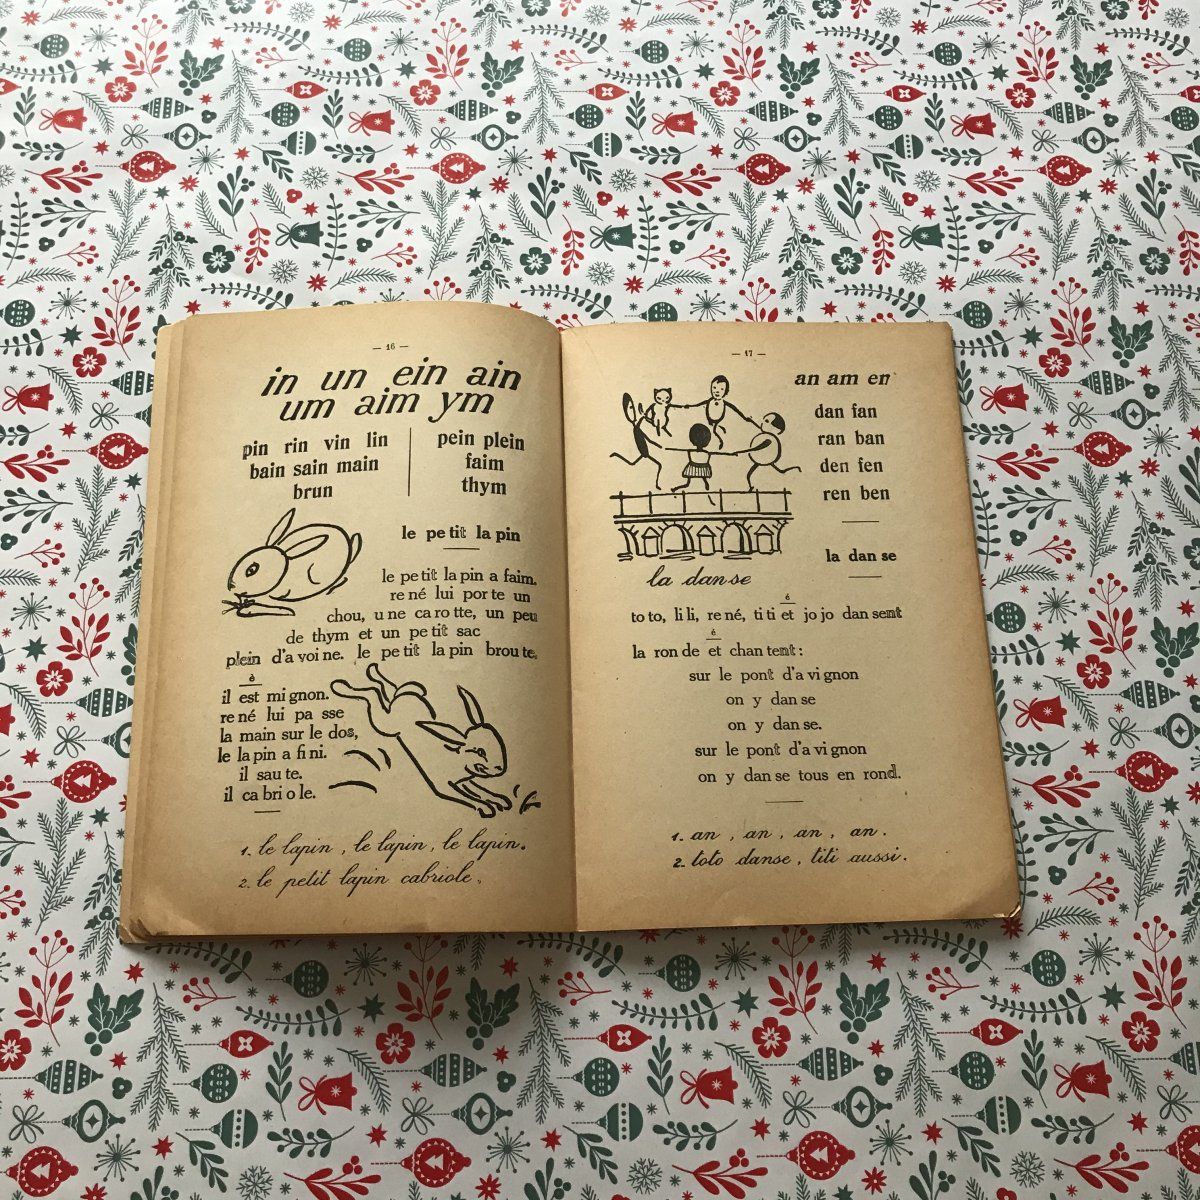 — 16 —
in un ein ain
um aim ym
pin rin vin lin
bain sain main
brun
pein plein
faim
thym
le pe tit la pin
le pe tit la pin a faim.
re né lui por te un
chou, u ne ca ro tte, un peu
de thym et un pe tit sac
plein d'a voi ne. le pe tit la pin brou te.
è
il est mi gnon.
re né lui pa sse
la main sur le dos,
le la pin a fi ni.
il sau te.
il ca bri o le.
1. le lapin, le lapin, le lapin.
2. le petit lapin cabriole.
— 17 —
an am en
dan fan
ran ban
den fen
ren ben
la dan se
la danse
é
to to, li li, re né, ti ti et jo jo dan sent
é
la ron de et chan tent :
sur le pont d'a vi gnon
on y dan se
on y dan se.
sur le pont d'a vi gnon
on y dan se tous en rond.
1. an, an, an, an.
2. toto danse, titi aussi.